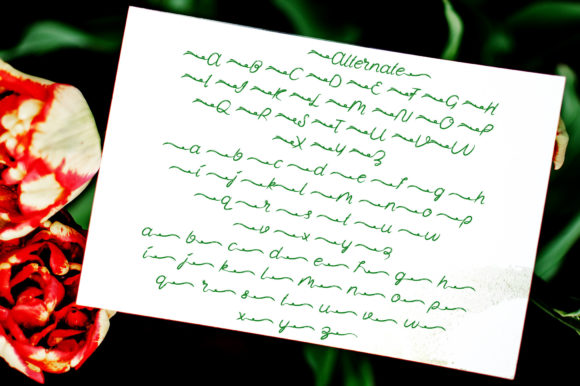 Alternate
A B C D E F G H
I J K L M N O P
Q R S T U V W
X Y Z
a b c d e f g h
i j k l m n o p
q r s t u w
v x y z
a b c d e f g h
i j k l m n o p
q r s t u v w
x y z